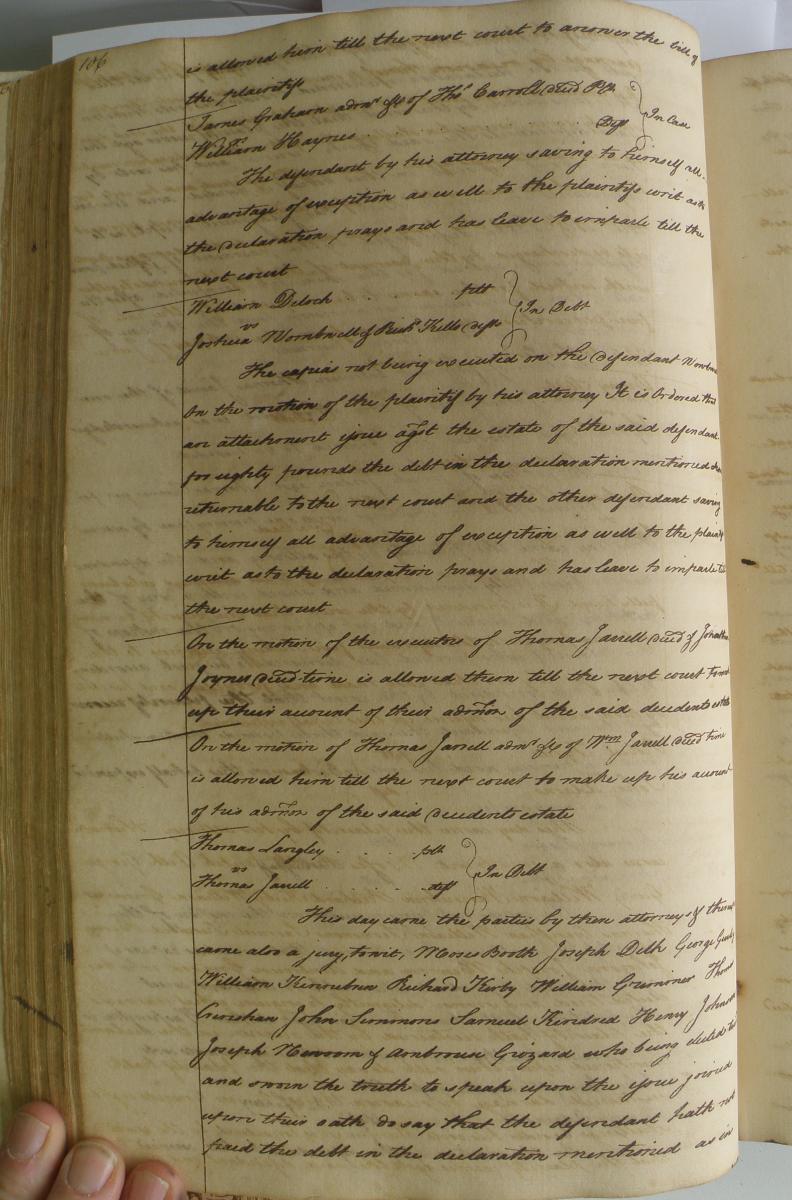 106
is allowed him till the next court to answer the bill of
the plaintiffs
James Graham admr &c of Thos Carroll deced Plt
In Case
vs
William Haynes Deft
The defendant by his attorney saving to himself all
advantage of exception as well to the plaintiffs writ as to
the declaration prays and has leave to imparle till the
next court
William Deloch plt
In Debt
vs
Joshua & Richd Kello defts
The capias not being executed on the defendant
On the motion of the plaintif by his attorney It is Ordered that
an attachment issue agst the estate of the said defendant
for eighty pounds the debt in the declaration mentioned
returnable to the next court and the other defendant saving
to himself all advantage of exception as well to the plaintifs
writ as to the declaration prays and has leave to imparle till
the next court
On the motion of the executors of Thomas Jarrell deced & Jonathan
Joyner deced time is allowed them till the next court to make
up their account of their admon of the said decedents estate
On the motion of Thomas Jarrell admr &c of Wm Jarrell deced time
is allowed him till the next court to make up his account
of his admon of the said decedents estate
Thomas Langley plt
In Debt
vs
Thomas Jarrell deft
This day came the parties by their attorneys & thereupon
came also a jury, towit, Moses Booth Joseph Delk George
William Kinnebrew Richard Kirby William Grimmer Thomas
Crenshaw John Simmons Samuel Kindred Henry Johnson
Joseph Newsom & Ambrous Grizard who being elected tried
and sworn the truth to speak upon the issue joined
upon their oath do say that the defendant hath not
paid the debt in the declaration mentioned as in